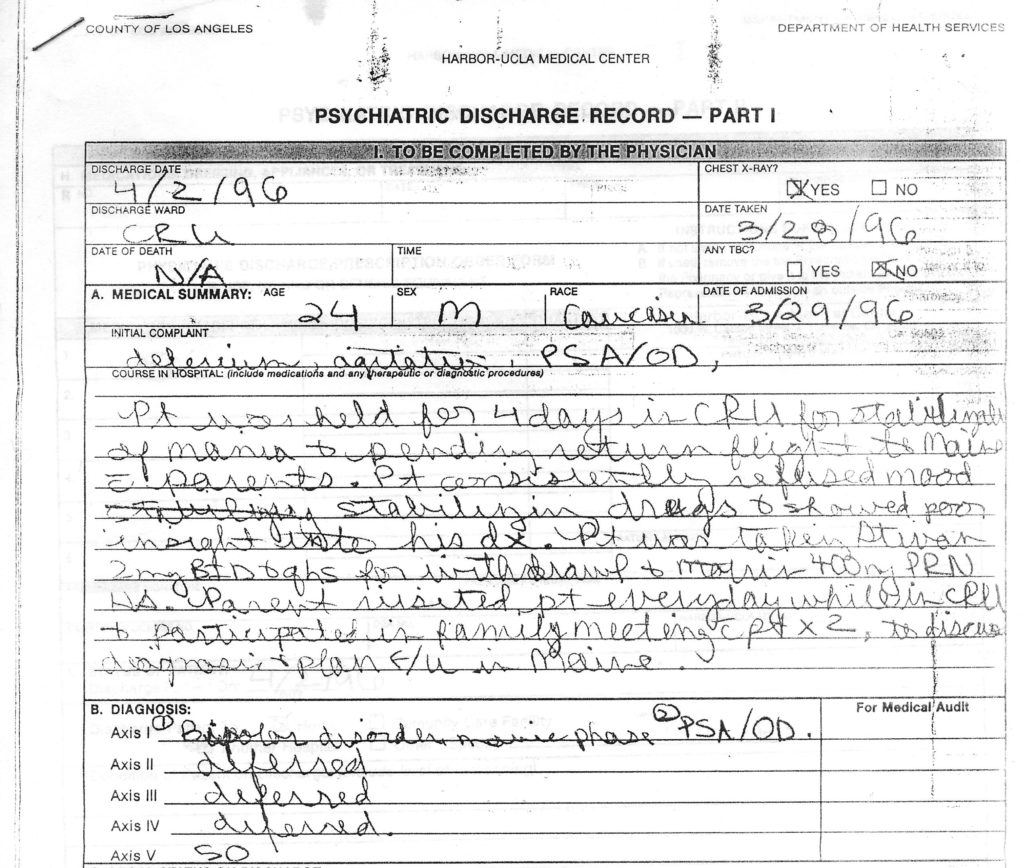 COUNTY OF LOS ANGELES
DEPARTMENT OF HEALTH SERVICES
HARBOR-UCLA MEDICAL CENTER
PSYCHIATRIC DISCHARGE RECORD — PART I
I. TO BE COMPLETED BY THE PHYSICIAN
DISCHARGE DATE 4/2/96
CHEST X-RAY? ☒ YES ☐ NO
DISCHARGE WARD CRU
DATE TAKEN 3/28/96
DATE OF DEATH N/A
TIME
ANY TBC? ☐ YES ☒ NO
A. MEDICAL SUMMARY: AGE 24 SEX M RACE Caucasin DATE OF ADMISSION 3/29/96
INITIAL COMPLAINT
delerium, agitation, PSA/OD,
COURSE IN HOSPITAL: (include medications and any therapeutic or diagnostic procedures)
Pt was held for 4 days in CRU for
of mania & pending return flight to Maine
c̄ parents. Pt consistently refused mood
stabilizin drugs & showed poor
insight into his dx. Pt was takin Ativan
2mg BID & qhs for withdrawl & 400mg PRN
HS. Parent visited pt everyday while in CRU
& participated in family meeting c̄ pt x 2, to discuss
diagnosis & plan F/U in Maine.
B. DIAGNOSIS:
For Medical Audit
Axis I ① Bipolar disorder manic phase ② PSA/OD.
Axis II deferred
Axis III deferred
Axis IV deferred.
Axis V 50